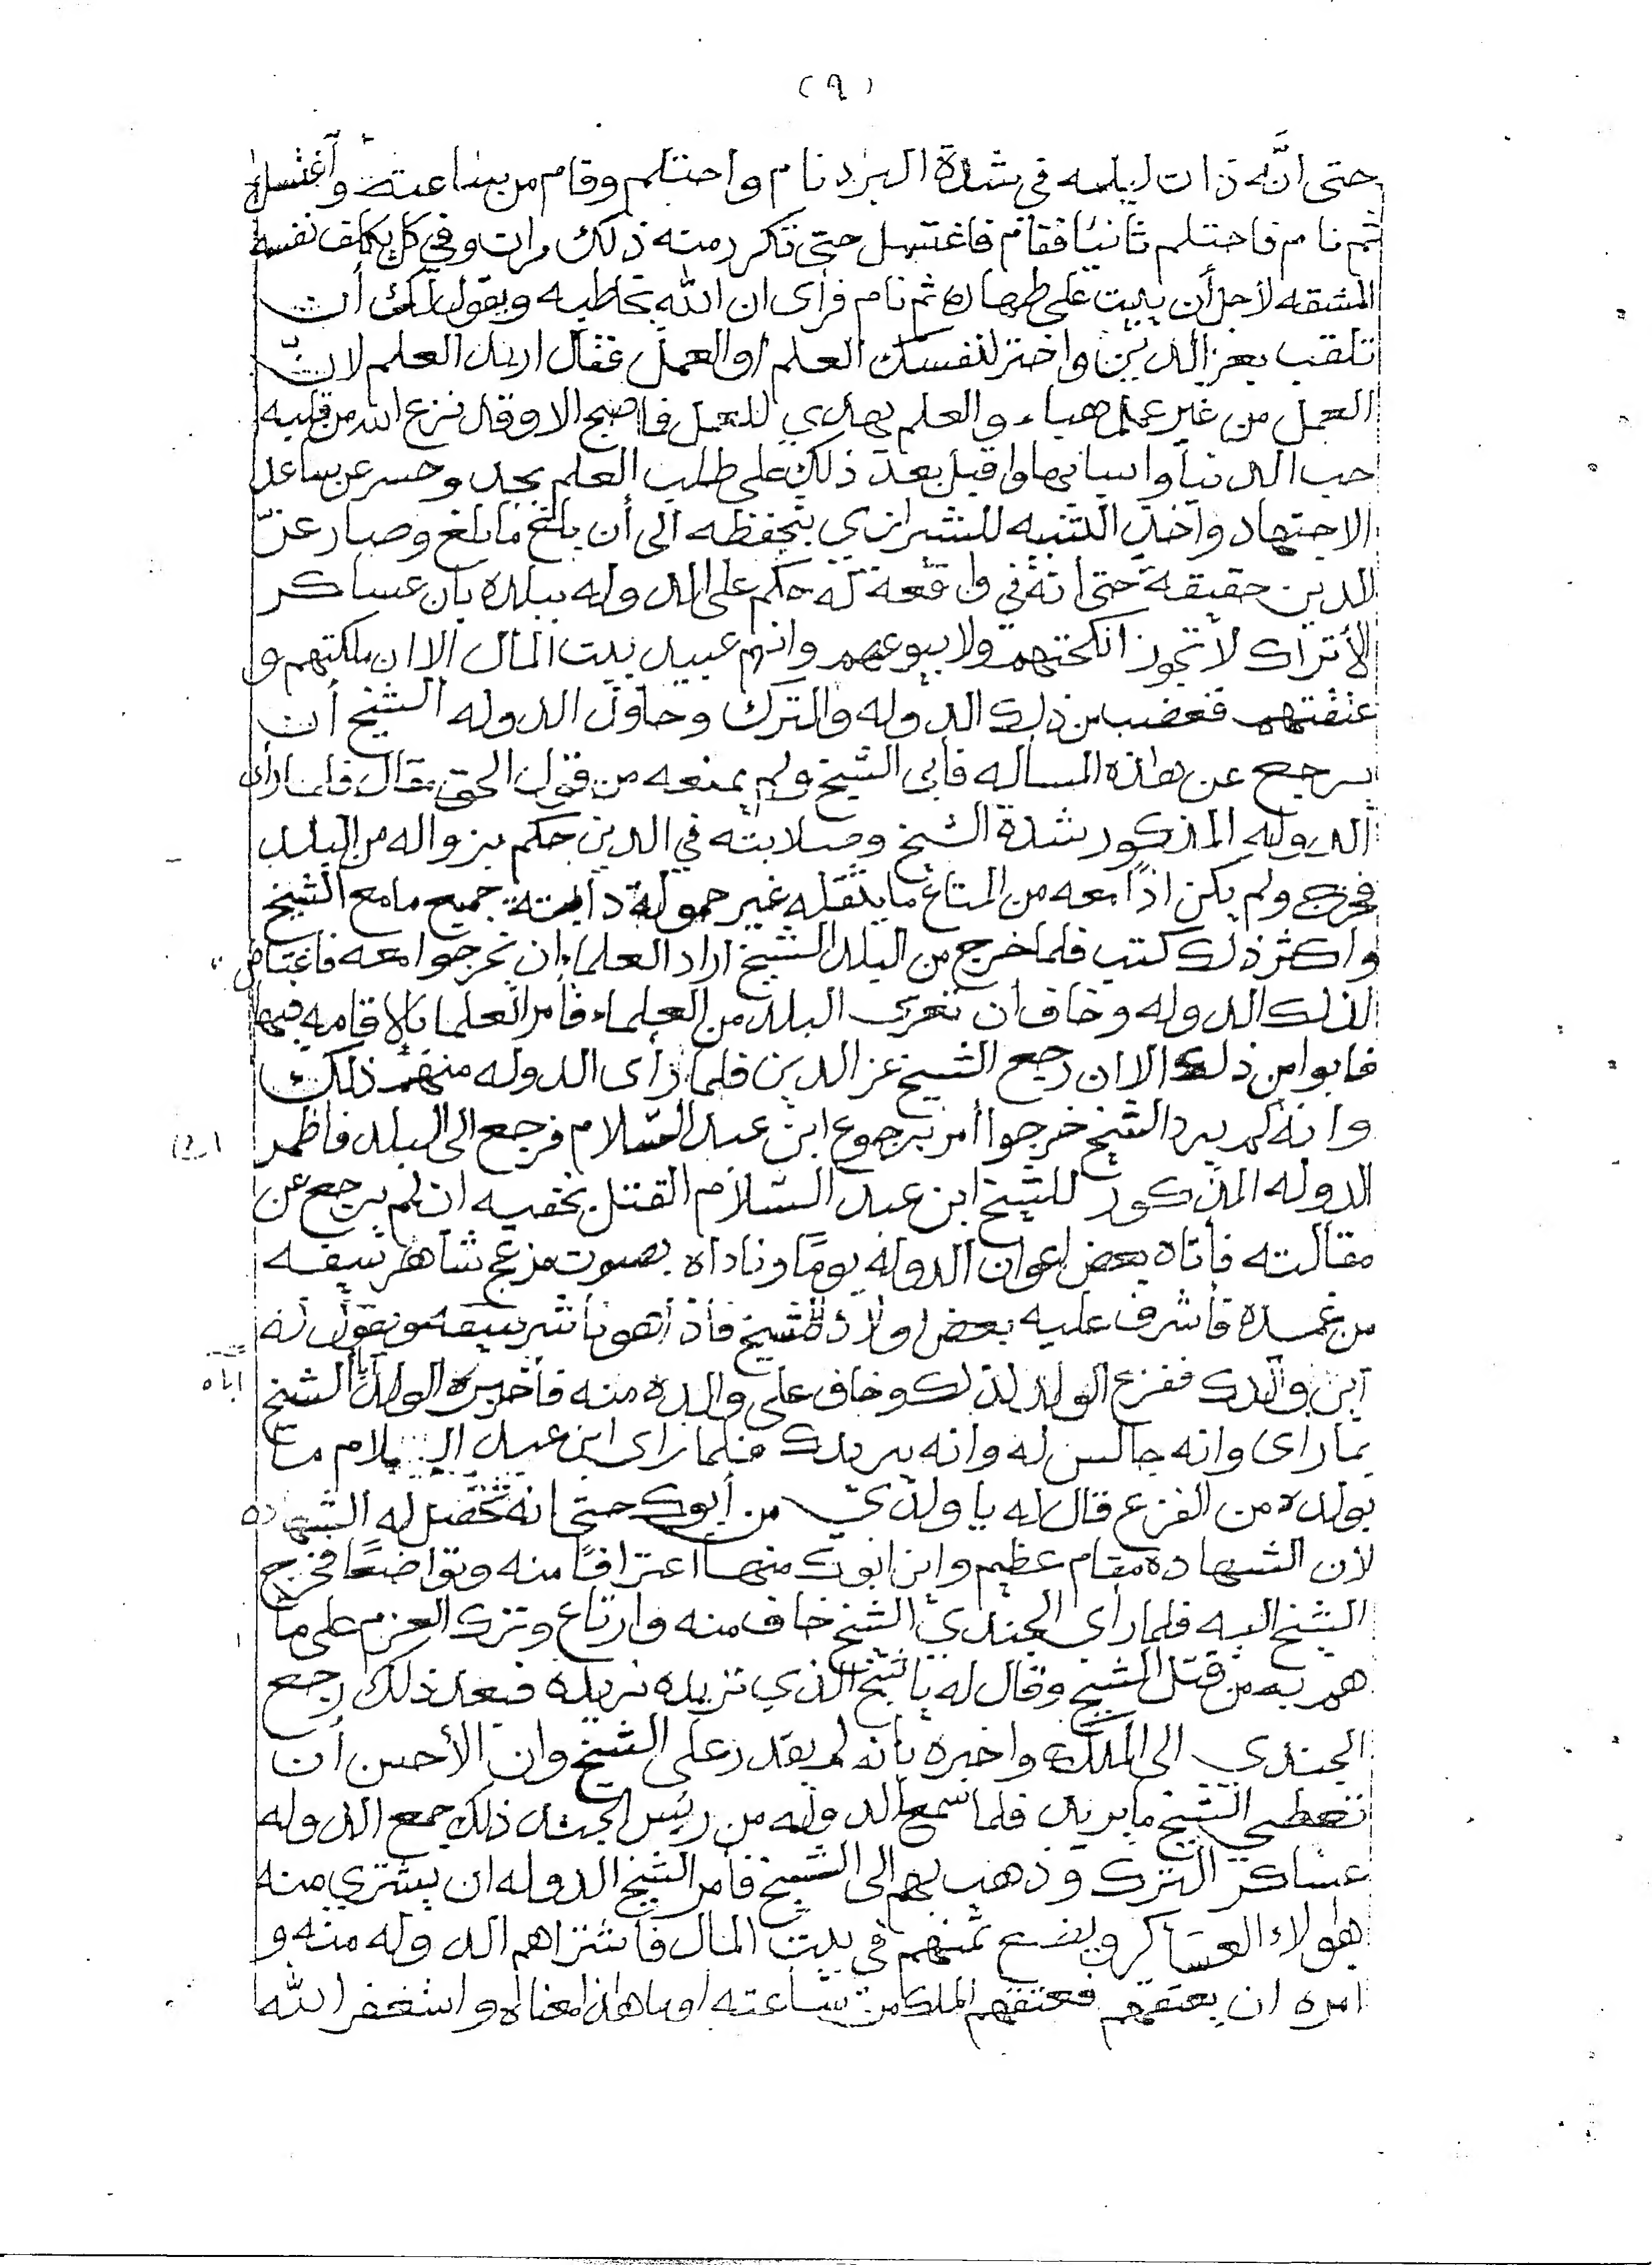 (٩)
حتى انّه ذات ليله في شدة البرد نام واحتلم وقام من ساعته وأغتسل
ثم نام فاحتلم ثانيًا فقام فاغتسل حتى تكرر منه ذلك مرات وفي كل يكلف نفسه
المشقه لأجل أن يبيت على طهاره ثم نام فرأى ان الله يخاطبه ويقول لك أن
تلقب بعز الدين واختر لنفسك العلم او العمل فقال اريد العلم لانّ
العمل من غير علم هباء والعلم يهدي للعمل فاصبح الا وقد نزع الله من قلبه
حب الدنيا واسبابها واقبل بعد ذلك على طلب العلم بجد وحسر عن ساعد
الاجتهاد واخذ التنبيه للشيرازي يتحفظه الى أن بلغ ما بلغ وصار عزّ
الدين حقيقة حتى انه في واقعة له حكم على الدوله ببلده بأن عساكر
الأتراك لا تجوز انكحتهم ولا بيوعهم وانهم عبيد بيت المال الا ان ملكتهم و
عتقتهم فغضب من ذلك الدوله والترك وحاول الدوله الشيخ أن
يرجع عن هذه المساله فأبى الشيخ ولم يمنعه من قول الحق مقال فلما رأى
الدوله المذكور شدة الشيخ وصلابته في الدين حكم بزواله من البلد
فخرج ولم يكن اذًا معه من المتاع ما يثقله غير حمولة دابته جميع ما مع الشيخ
واكثر ذلك كتب فلما خرج من البلد الشيخ اراد العلماء ان يخرجوا معه فاغتاض
لذلك الدوله وخاف ان تعرى البلد من العلماء فأمر العلما بالاقامه فيها
فابوا من ذلك الا ان رجع الشيخ عز الدين فلما رأى الدوله منهم ذلك
وانه لم يرد الشيخ خرجوا أمر برجوع ابن عبد السلام فرجع الى البلد فاظهر
الدوله المذكور للشيخ ابن عبد السلام القتل بخفيه ان لم يرجع عن
مقالته فأتاه بعض اعوان الدوله يومًا وناداه بصوت مزعج شاهر سيفه
من غمده فأشرف عليه بعض اولاد الشيخ فأذا هو ناشر سيفه ويقول له
أين والدك ففزع الولد لذلك وخاف على والده منه فأخبره الولد أباه الشيخ
أباه
بما رأى وانه جالس له وانه يريدك فلما راى ابن عبد السلام ما
بولده من الفزع قال له يا ولدي من أبوك حتى انه تحصل له الشهاده
لأن الشهاده مقام عظيم واين ابوك منها اعترافًا منه وتواضعًا فخرج
الشيخ اليه فلما رأى الجندي الشيخ خاف منه وارتاع وترك العزم على ما
هم به من قتل الشيخ وقال له يا شيخ الذي تريده نريده فبعد ذلك رجع
الجندي الى الملك واخبره بأنه لم يقدر على الشيخ وان الأحسن أن
تعطي الشيخ ما يريد فلما سمع الدوله من رئيس الجند ذلك جمع الدوله
عساكر الترك وذهب بهم الى الشيخ فأمر الشيخ الدوله ان يشتري منه
هؤلاء العساكر ويضع ثمنهم في بيت المال فأشتراهم الدوله منه و
امره ان يعتقهم فعتقهم الملك من ساعته او ما هذا معناه واستغفر الله